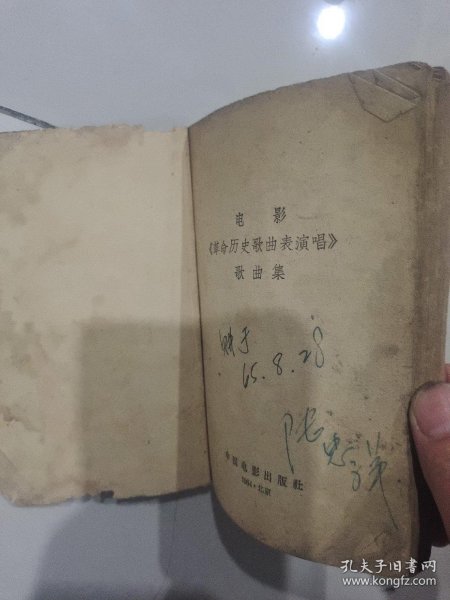 电影
《革命历史歌曲表演唱》
歌曲集
购于
65.8.28
中国电影出版社
1964·北京
孔夫子旧书网
www.kongfz.com